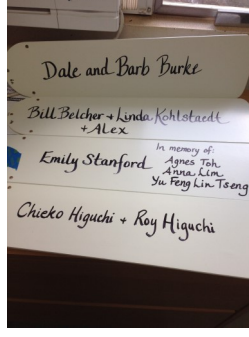 Dale and Barb Burke
Bill Belcher + Linda Kohlstaedt
+ Alex
In memory of:
Emily Stanford
Agnes Toh
Anna Lim
Yu Feng Lin Tseng
Chieko Higuchi + Roy Higuchi